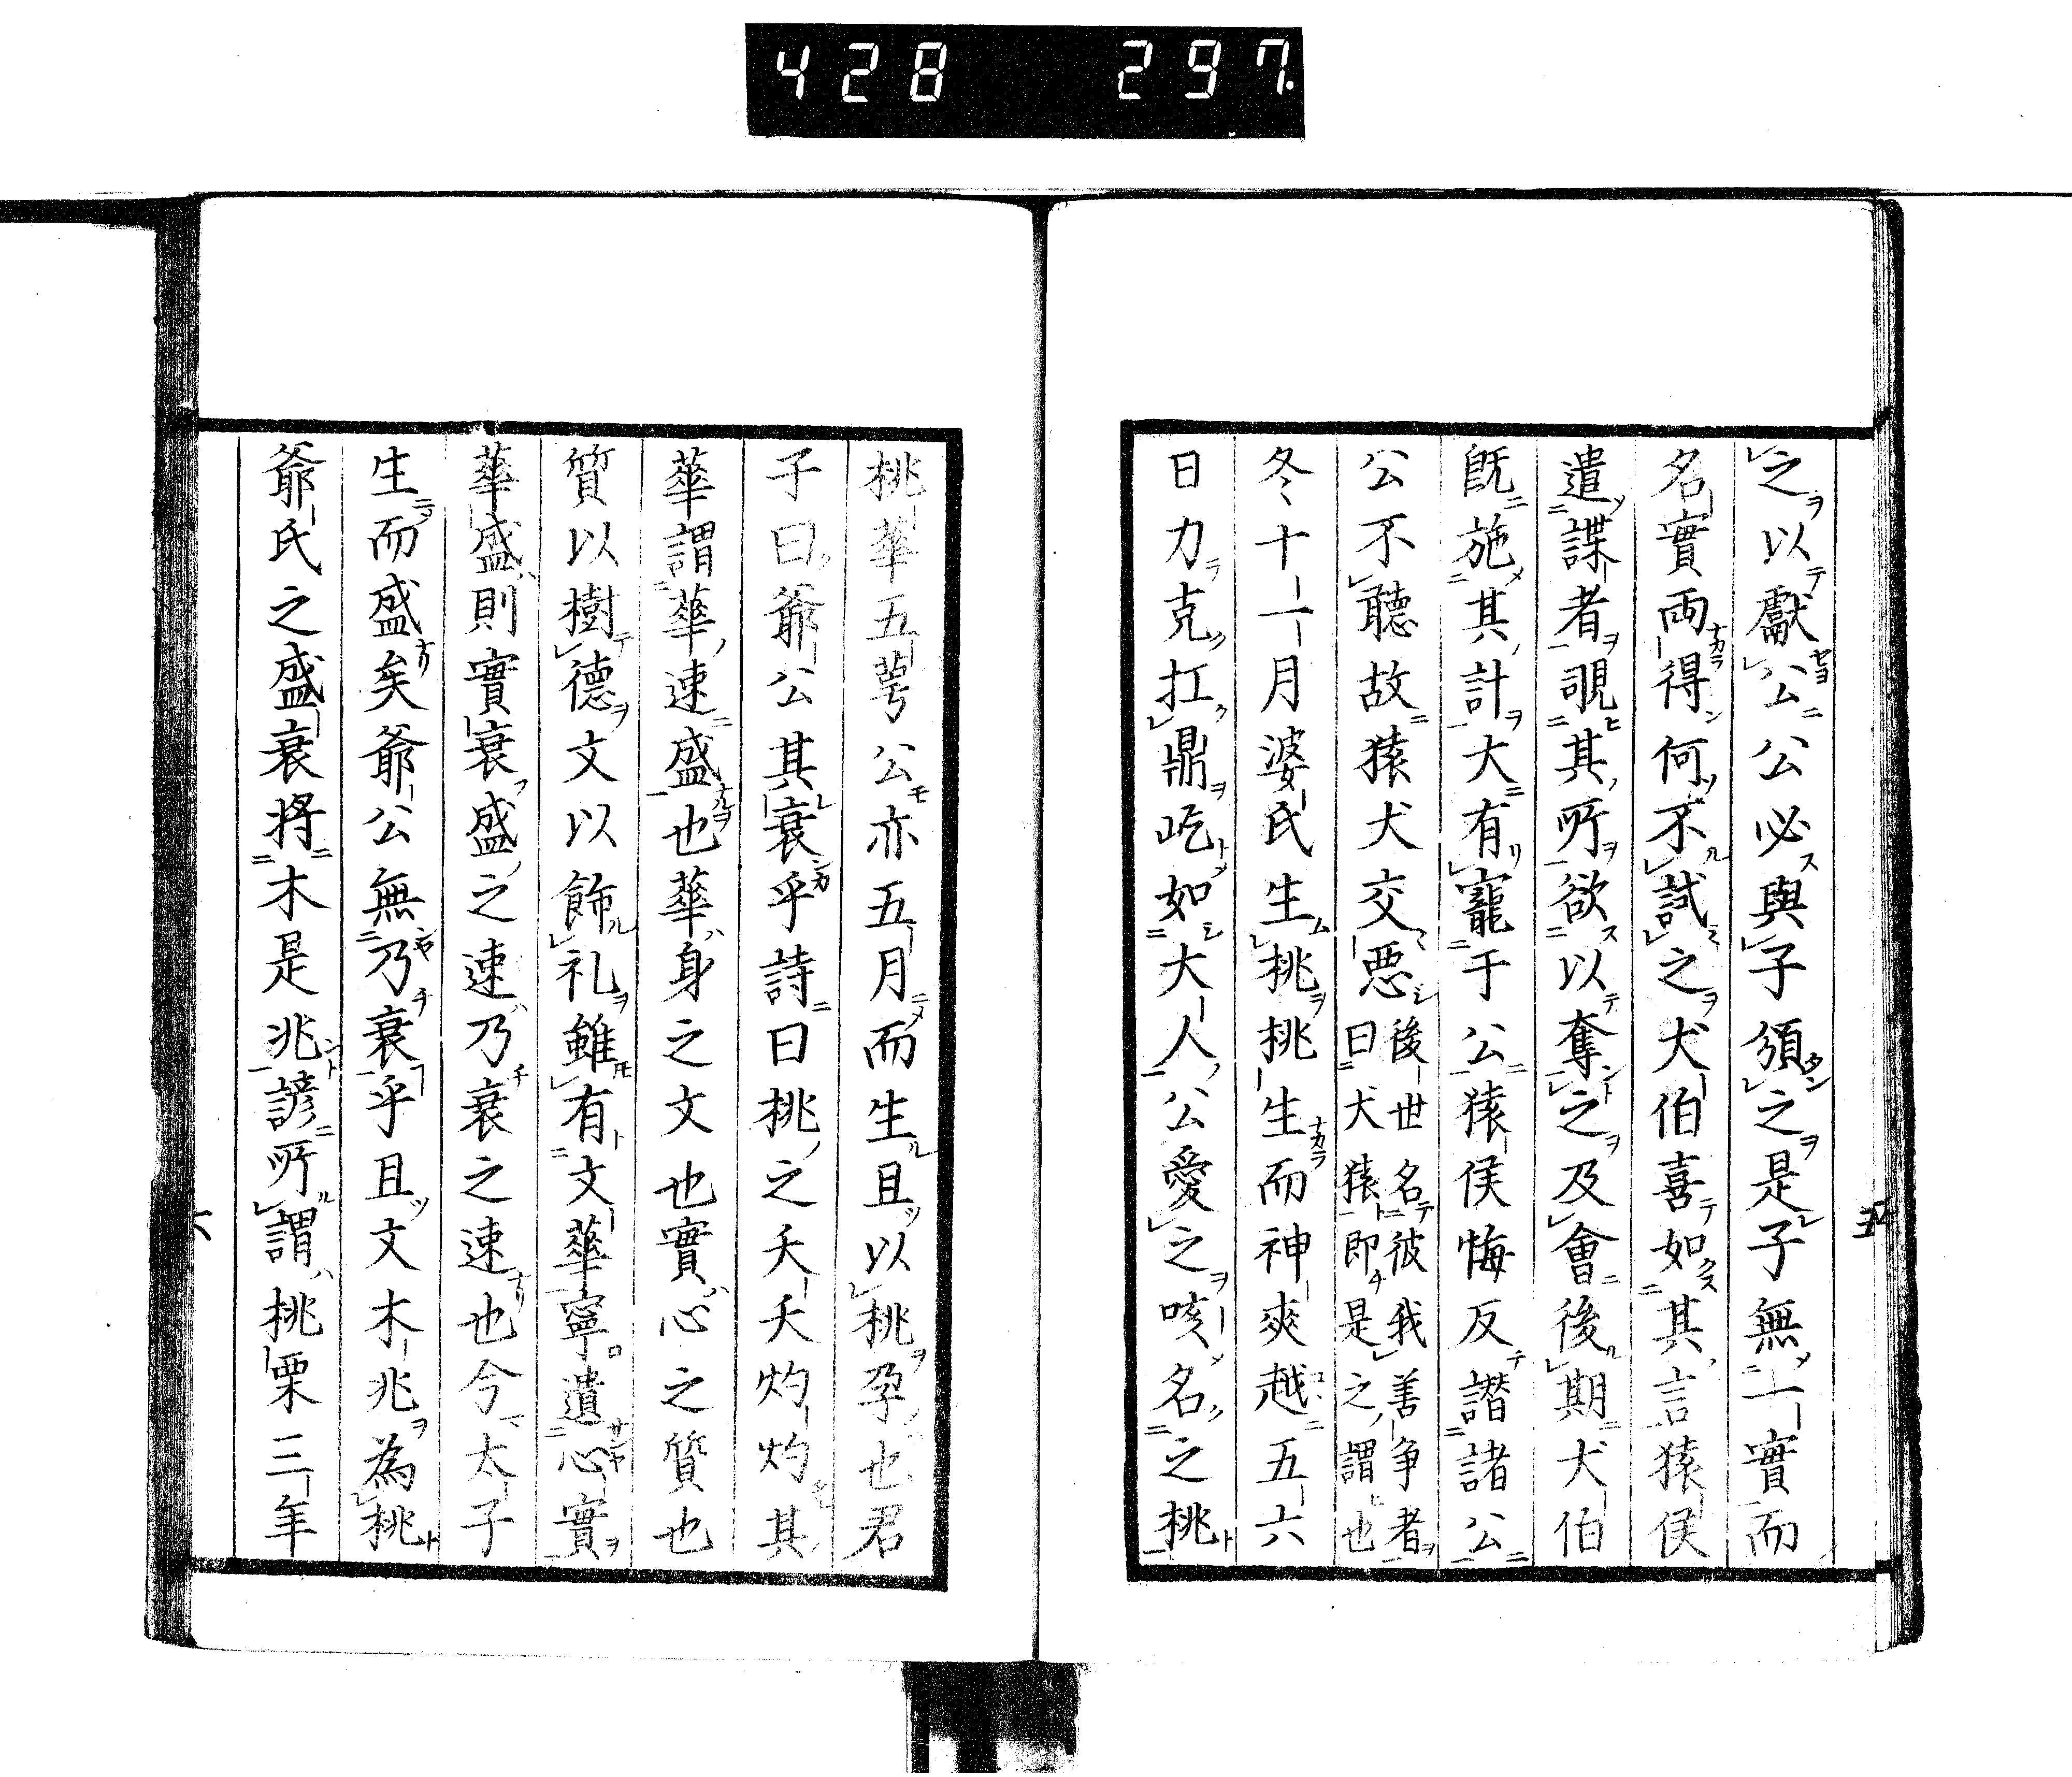 428 297.
之以獻公公必與子須之是子無一實而
名實両得何不試之犬伯喜如其言猿侯
遣諜者覗其所欲以奪之及會後期犬伯
既施其計大有寵于公猿侯悔反譖諸公
公不聽故猿犬交惡後世名彼我善争者
曰犬猿即是之謂也
冬十一月婆氏生桃桃生而神爽越五六
日力克扛鼎屹如大人公愛之咳名之桃
五
桃華五萼公亦五月而生且以桃孕也君
子曰爺公其衰乎詩曰桃之夭夭灼灼其
華謂華速盛也華身之文也實心之質也
質以樹德文以飾礼雖有文華寧遺心實
華盛則實衰盛之速乃衰之速也今太子
生而盛矣爺公無乃衰乎且文木兆為桃
爺氏之盛衰将木是兆諺所謂桃栗三年
六